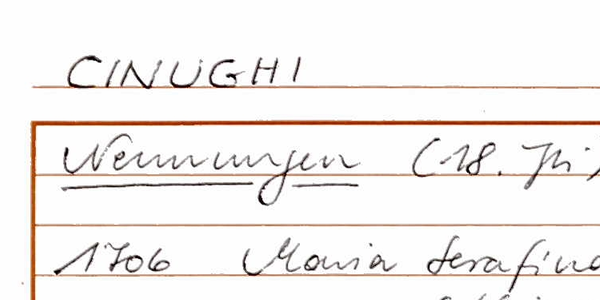 CINUGHI
Nennungen (18. Jh)
1706 Maria Serafina